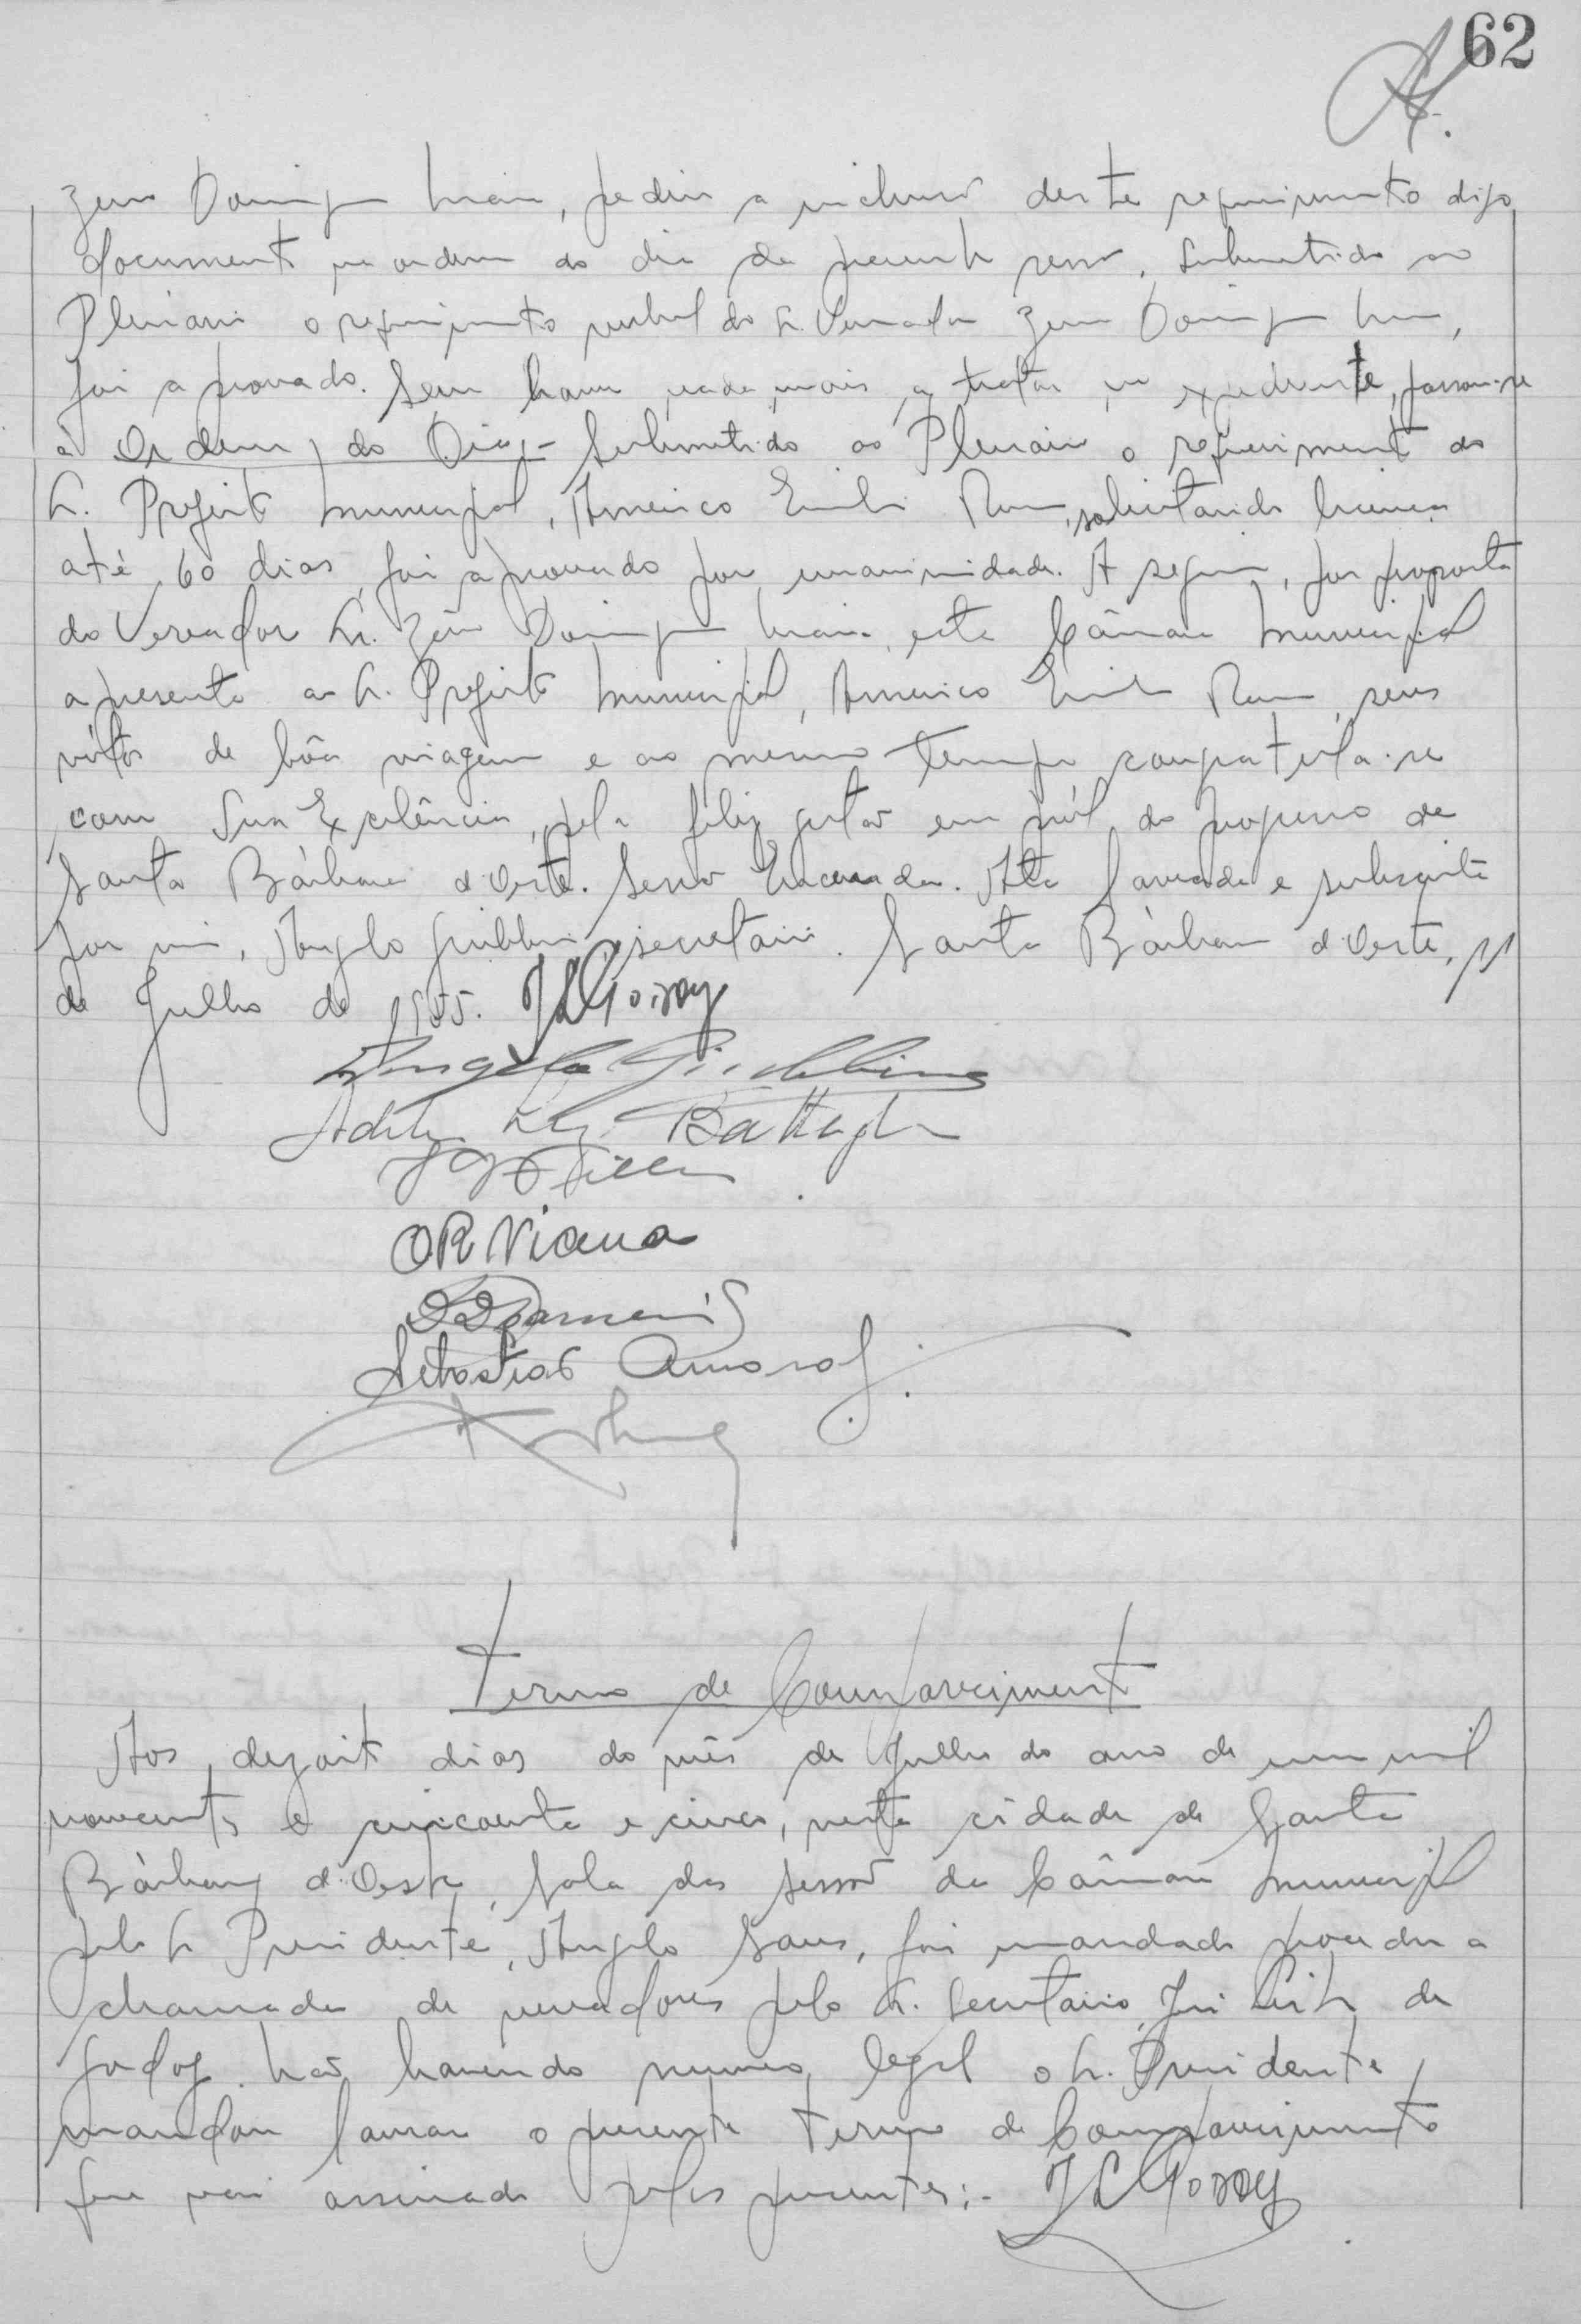 62
Zeno Domingos Maia, pediu a inclusão deste requerimento digo
documento na ordem do dia da presente sessão. Submetido ao
Plenário o requerimento verbal do Sr. Vereador Zeno Domingos Maia,
foi aprovado. Sem haver nada mais a tratar no expediente, passou-se
à Ordem do Dia,- Submetido ao Plenário o requerimento do
Sr. Prefeito Municipal, Americo Emilio Romi, solicitando licença
até 60 dias, foi aprovado por unanimidade. A seguir, por proposta
do Vereador Sr. Zeno Domingos Maia, esta Câmara Municipal
apresenta ao Sr. Prefeito Municipal, Americo Emilio Romi, seus
vótos de bôa viagem e ao mesmo tempo congratula-se
com Sua Excelência, pela feliz gestão em pról do progresso de
Santa Bárbara d'Oeste. Sessão Encerrada. Ata lavrada e subscrita
por mim, Angelo Giubbina, secretario. Santa Bárbara d'Oeste, 11
de Julho de 1955. JLGodoy
Angelo Giubbina
Battagli
OR Viana
Sebastião Amaral
Termo de Comparecimento
Aos dezoito dias do mês de Julho do ano de um mil
novecentos e cincoenta e cinco, nesta cidade de Santa
Bárbara d'Oeste, Sala das Sessões da Câmara Municipal
pelo Sr. Presidente, Angelo Sans, foi mandado proceder a
chamada de vereadores pelo Sr. Secretario, José Leite de
Godoy. Não havendo numero legal o Sr. Presidente
mandou lavrar o presente termo de Comparecimento
que vai assinado pelos presentes:- JLGodoy